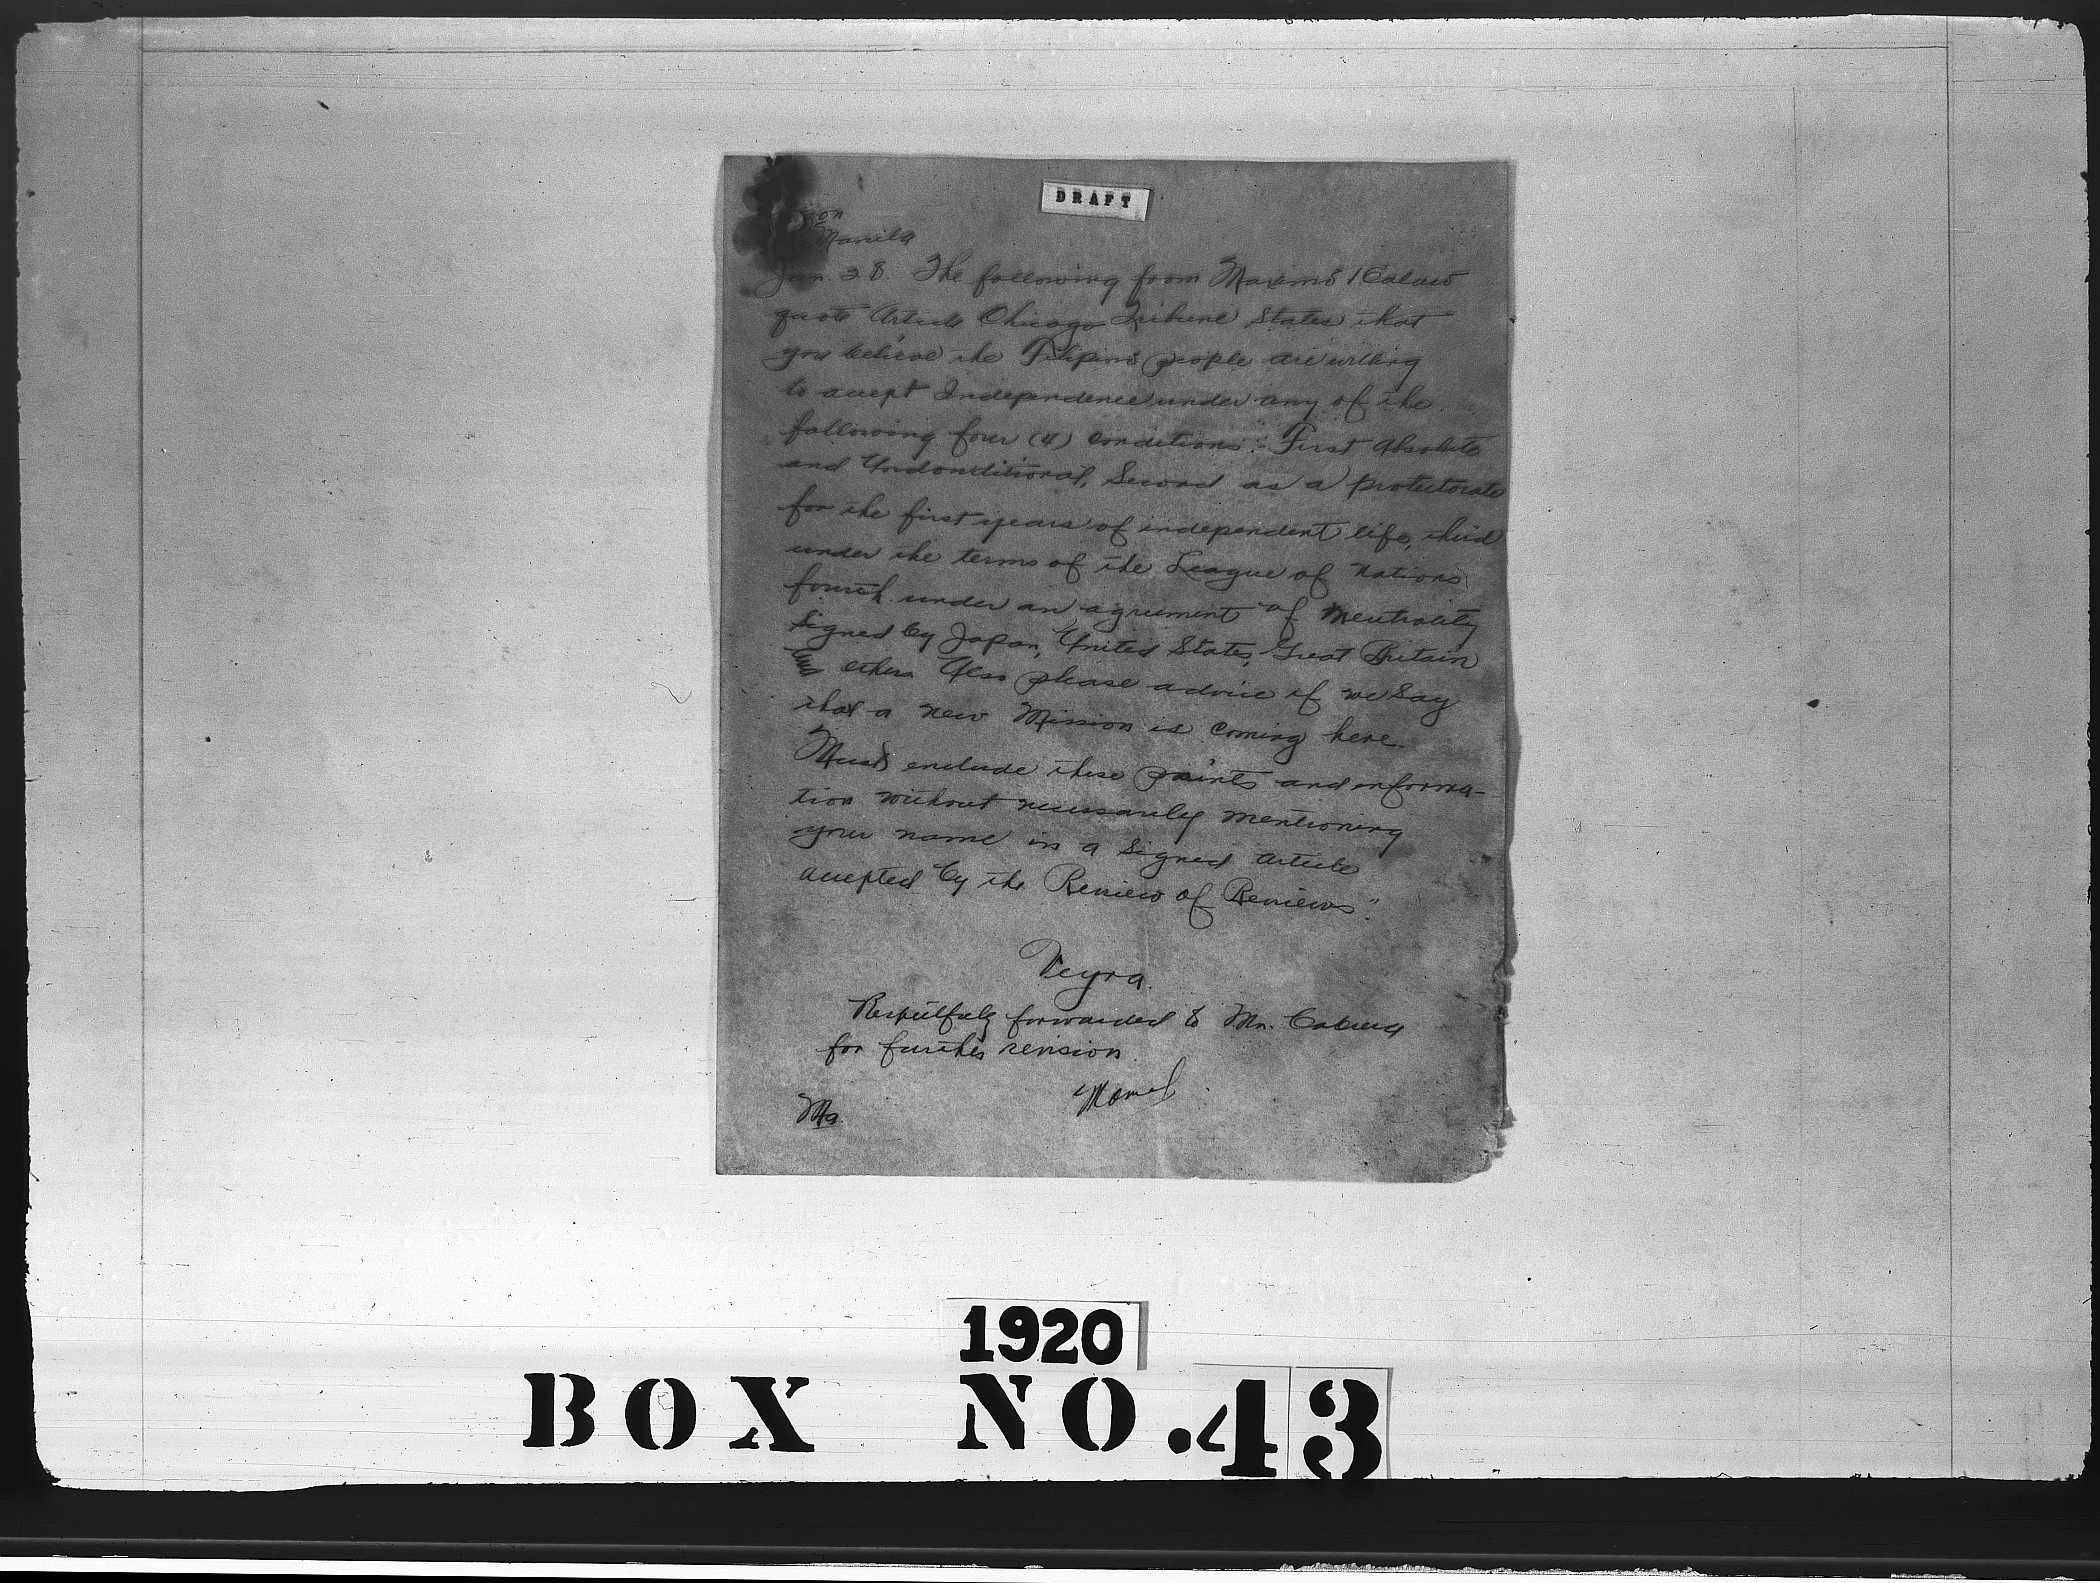 DRAFT
on
Manila
Jan. 28. The following from Maximo Kalaw
quote Article Chicago Tribune States that
you believe the Filipino people are willing
to accept Independence under any of the
following four (4) conditions: First Absolute
and Unconditional, Second as a protectorate
for the first years of independent life, third
under the terms of the League of Nations
fourth under an agreement of Neutrality
Signed by Japan, United States, Great Britain
others Also please advice if we say
that a new Mission is coming here.
Must enclude these points and informa-
tion without necessarily mentioning
your name in a signed article
accepted by the Review of Reviews."
Veyra.
Respectfully forwarded to Mr.
for further revision.
Ma
1920
BOX NO.43